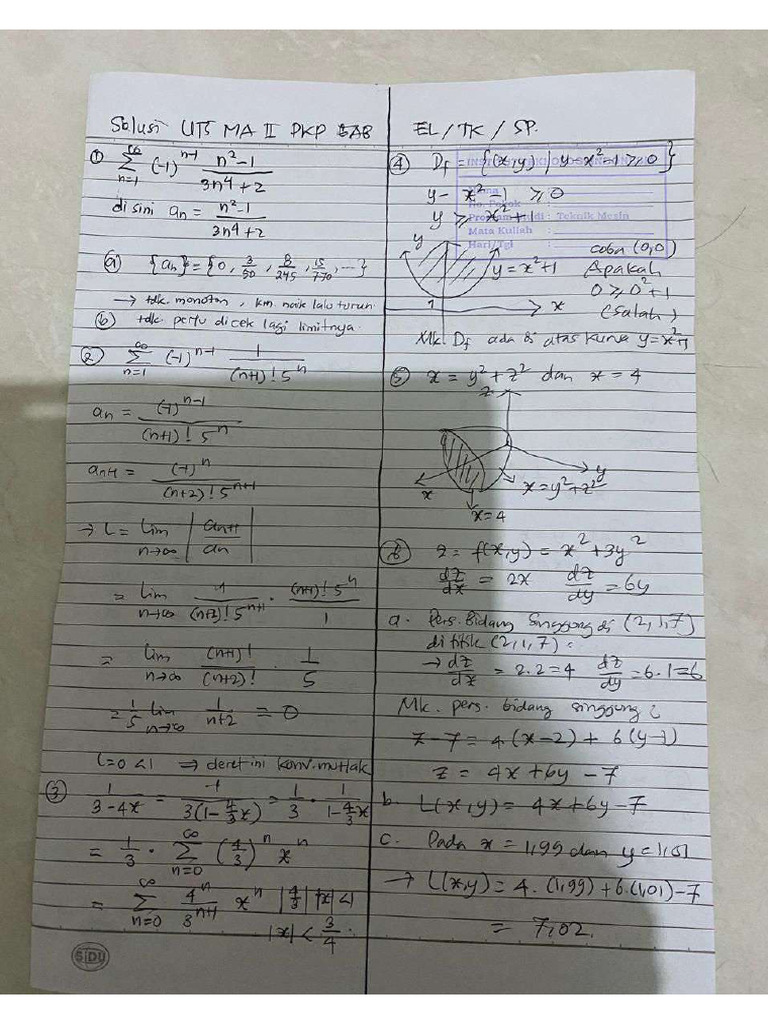 Solusi UTS MA II PKP EAB
EL/TK/SP.
① ∞ Σ n=1 (-1)^(n-1) (n²-1)/(3n⁴+2)
disini an = (n²-1)/(3n⁴+2)
ⓐ {an} = {0, 3/50, 8/245, 15/770, ...}
→ tdk monoton, krn naik lalu turun
ⓑ tdk perlu dicek lagi limitnya.
② ∞ Σ n=1 (-1)^(n-1) 1/((n+1)! 5^n)
an = (-1)^(n-1)/((n+1)! 5^n)
an+1 = (-1)^n/((n+2)! 5^(n+1))
→ L = lim n→∞ |an+1/an|
= lim n→∞ 1/((n+2)! 5^(n+1)) · ((n+1)! 5^n)/1
= lim n→∞ (n+1)!/(n+2)! · 1/5
= 1/5 lim n→∞ 1/(n+2) = 0
L=0<1 ⇒ deret ini konv. mutlak
③ 1/(3-4x) = 1/(3(1-4/3 x)) = 1/3 · 1/(1-4/3 x)
= 1/3 · ∞ Σ n=0 (4/3)^n x^n
= ∞ Σ n=0 4^n/3^(n+1) x^n |4/3| |x| < 1
|x| < 3/4.
SiDU
④ Df = {(x,y) | y-x²-1 ≥ 0}
y - x² - 1 ≥ 0
y ≥ x² + 1
: Teknik Mesin
Mata Kuliah :
Hari/Tgl :
y
y = x²+1
coba (0,0)
Apakah
0 ≥ 0²+1
(salah)
1
x
Mk. Df ada di atas kurva y=x²+1
⑤ x = y² + z² dan x = 4
z
y
x
x = y²+z²
x=4
⑥ z = f(x,y) = x² + 3y²
dz/dx = 2x dz/dy = 6y
a. Pers. Bidang Singgung di (2,1,7)
di titik (2,1,7) :
→ dz/dx = 2.2=4 dz/dy = 6.1=6
Mk. pers. bidang singgung :
z-7 = 4(x-2) + 6(y-1)
z = 4x+6y-7
b. L(x,y) = 4x+6y-7
c. Pada x = 1,99 dan y = 1,01
→ L(x,y) = 4.(1,99) + 6.(1,01) - 7
= 7,02.